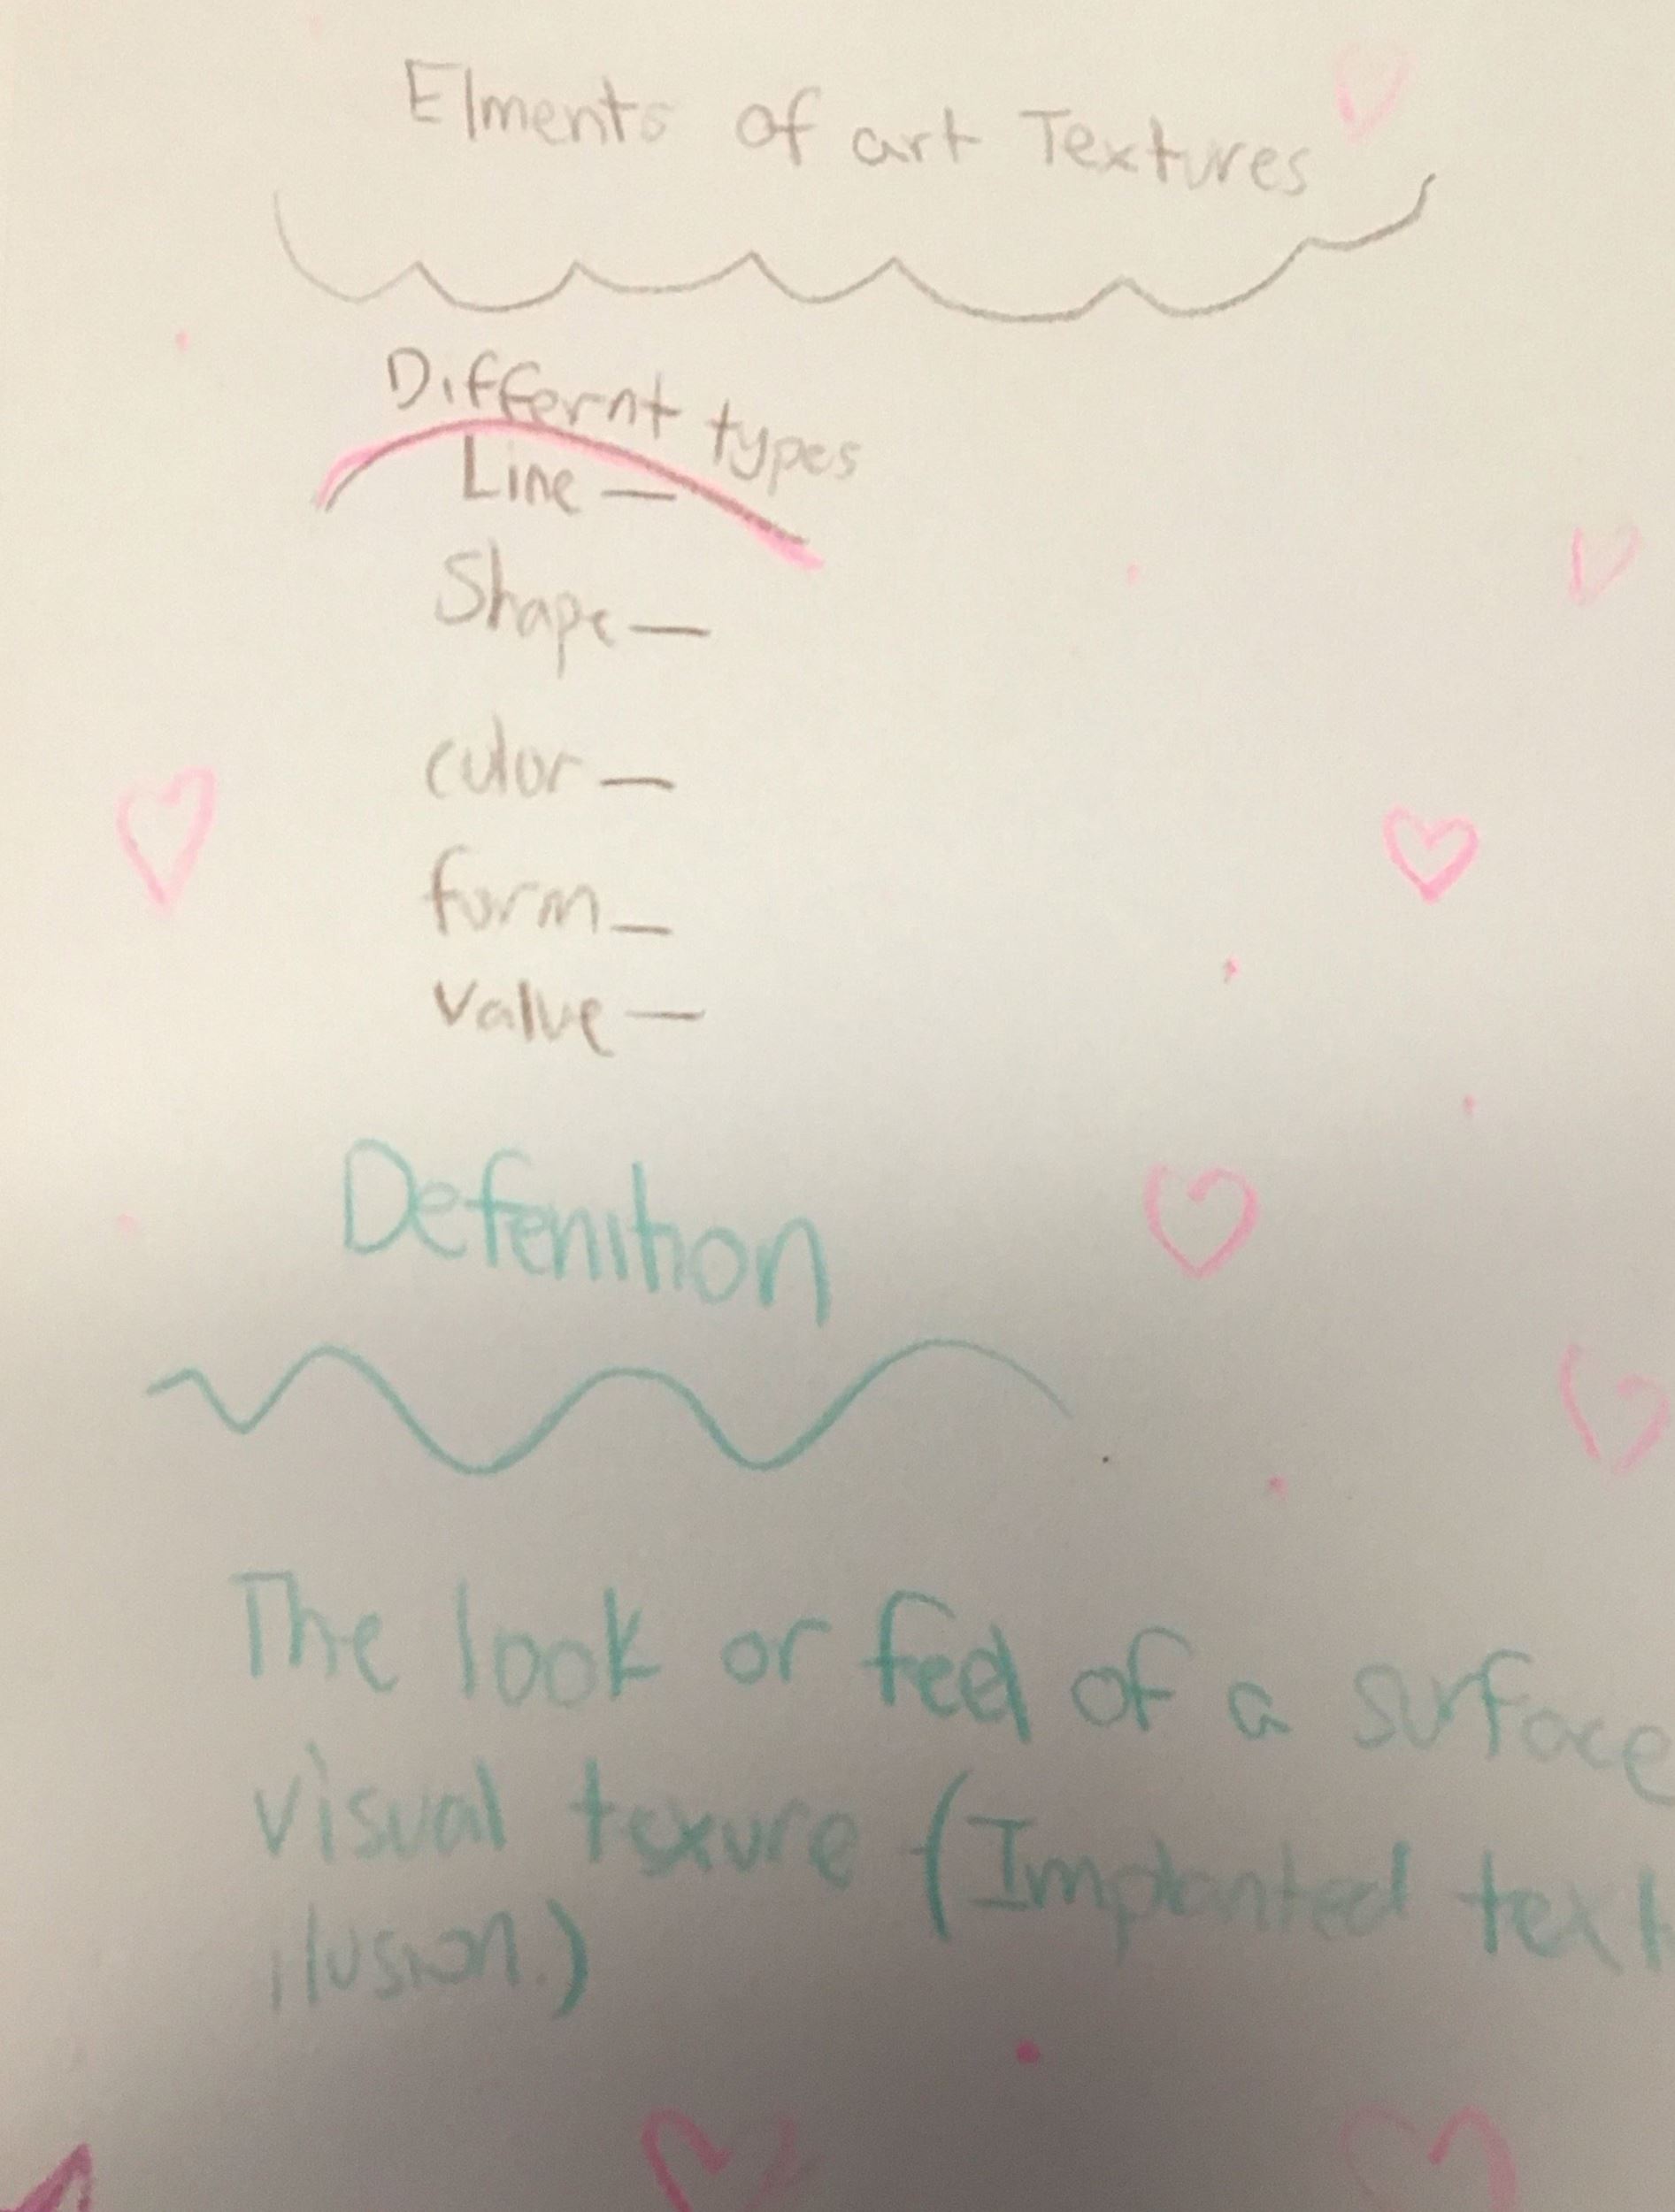 Elments of art Textures
Differnt types
Line —
Shape —
color —
form —
Value —
Defenition
The look or feel of a surface
visual texure (Implanted text
ilusion.)